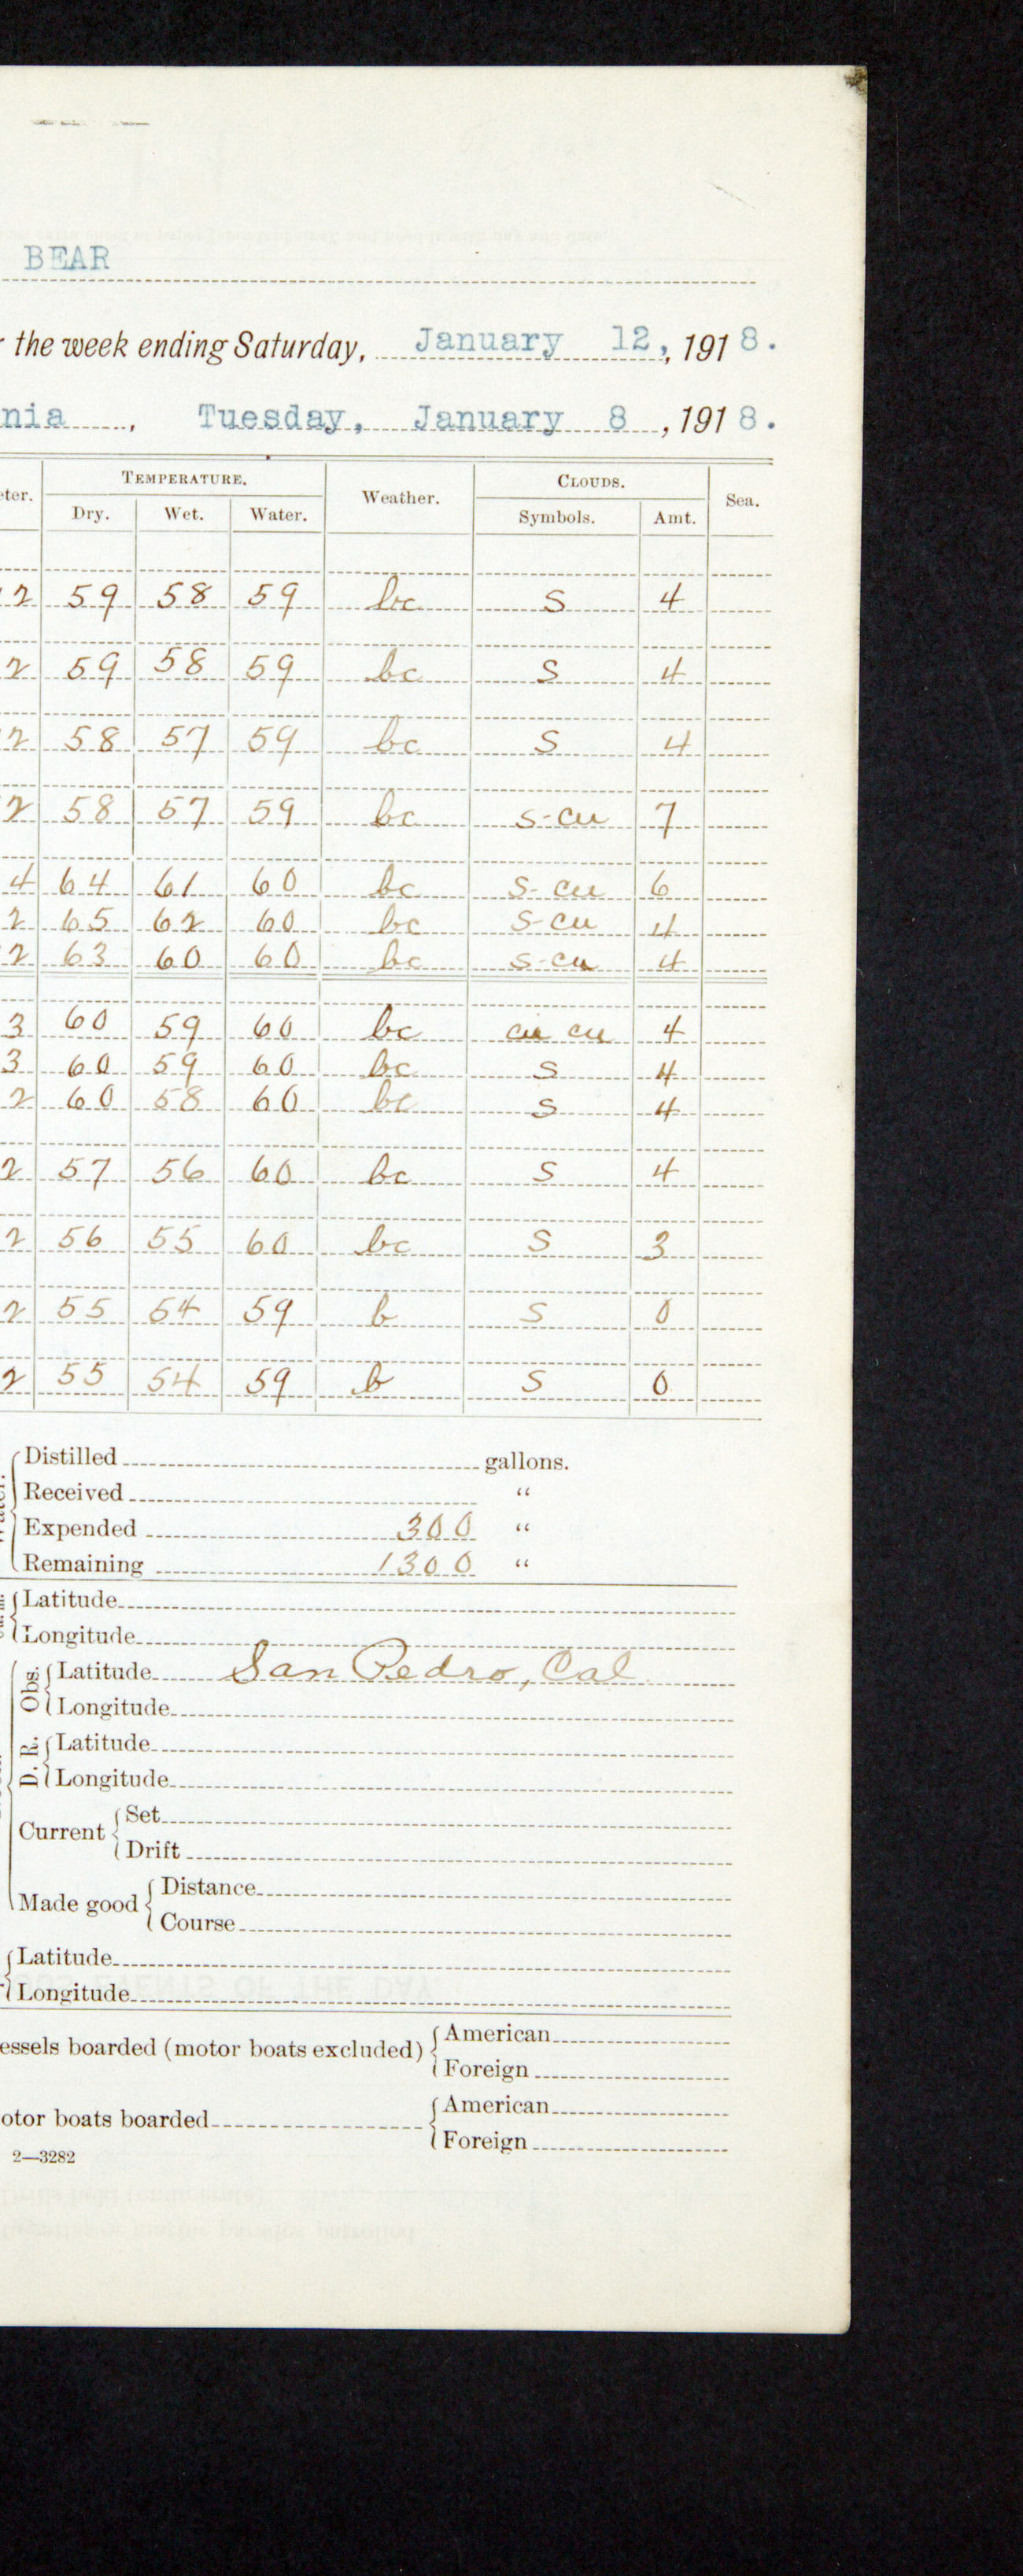 BEAR
the week ending Saturday, January 12, 1918.
nia, Tuesday, January 8, 1918.
eter. TEMPERATURE. Weather. CLOUDS. Sea.
Dry. Wet. Water. Symbols. Amt.
2 59 58 59 bc S 4
2 59 58 59 bc S 4
2 58 57 59 bc S 4
2 58 57 59 bc S-cu 7
4 64 61 60 bc S-cu 6
2 65 62 60 bc S-cu 4
2 63 60 60 bc S-cu 4
3 60 59 60 bc cu 4
3 60 59 60 bc S 4
2 60 58 60 bc S 4
2 57 56 60 bc S 4
2 56 55 60 bc S 3
2 55 54 59 b S 0
2 55 54 59 b S 0
Distilled gallons.
Received "
Expended 300 "
Remaining 1300 "
Latitude
Longitude
Obs. Latitude San Pedro, Cal
Longitude
D. R. Latitude
Longitude
Current Set
Drift
Made good Distance
Course
Latitude
Longitude
essels boarded (motor boats excluded) American
Foreign
otor boats boarded American
Foreign
2—3282